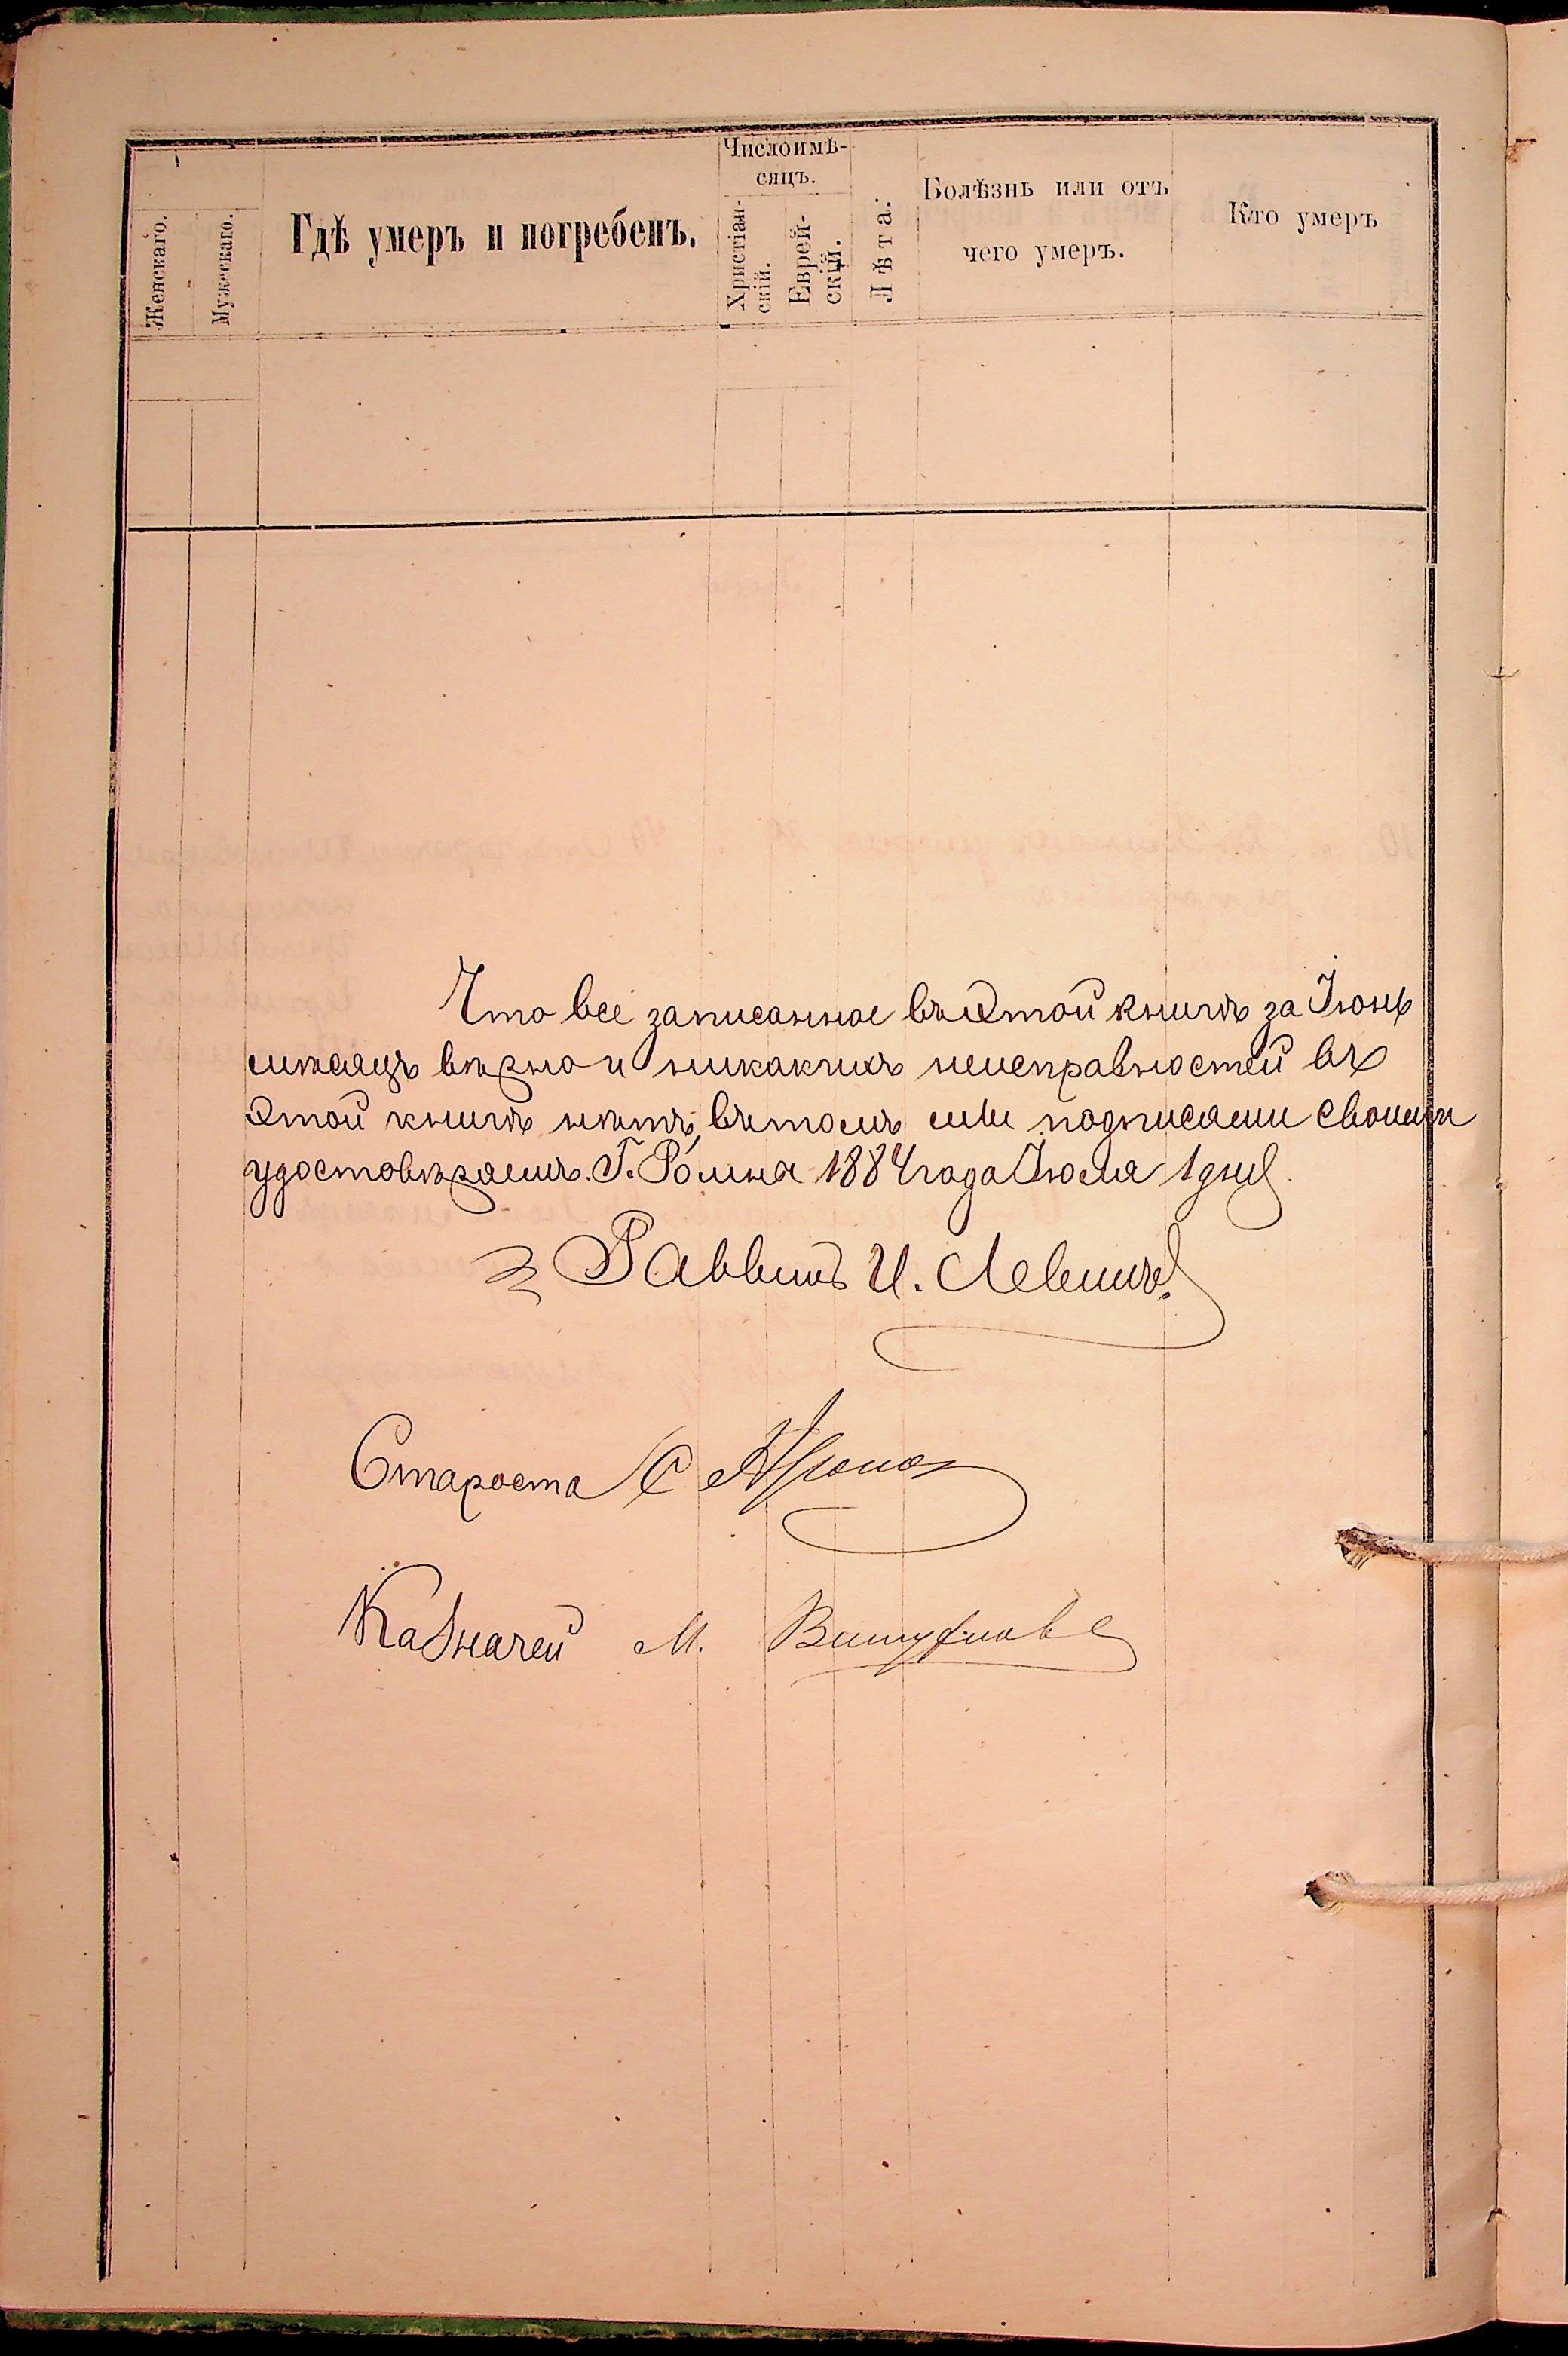 Числоимѣ-
сяцъ.
Женскаго.
Мужескаго.
Гдѣ умеръ и погребенъ.
Христіан-
скій.
Еврей-
скій.
Лѣта.
Болѣзнь или отъ
чего умеръ.
Кто умеръ
Что все записанное въ этой книгѣ за Іюнь
мѣсяцъ вѣрно и никакихъ неисправностей въ
этой книгѣ нѣтъ, въ томъ мы подписами своими
удостовѣряемъ. Г. Ромна 1884 года Іюля 1 дня
Раввинъ И. Левинъ.
Староста С
Казначей М.